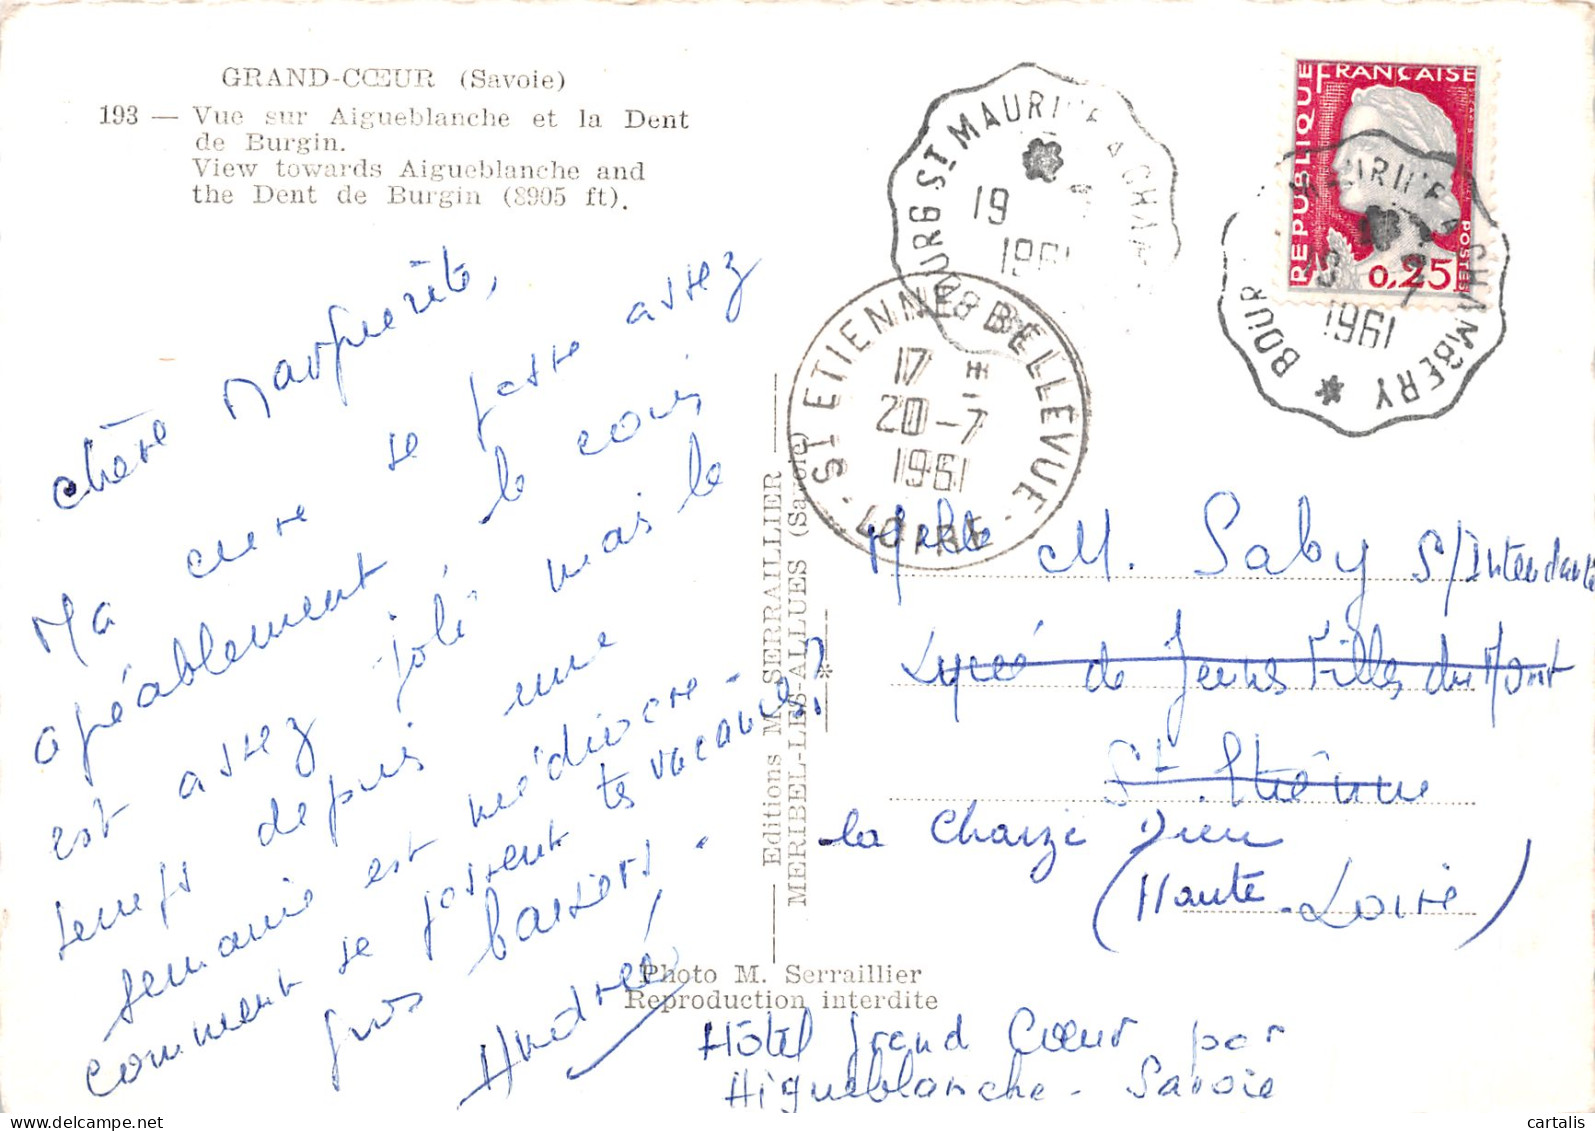 GRAND-CŒUR (Savoie)
193 — Vue sur Aigueblanche et la Dent
de Burgin.
View towards Aigueblanche and
the Dent de Burgin (8905 ft).
chère Marguerite,
Ma cure se passe assez
agréablement, le coin
est assez joli mais le
temps depuis une
semaine est médiocre -
comment se passent tes vacances?
gros baisers.
Andrée
Editions M. SERRAILLIER
MERIBEL-LES-ALLUES (Savoie)
Photo M. Serraillier
Reproduction interdite
BOURG ST MAURICE A CHA
19
1961
RÉPUBLIQUE FRANÇAISE
POSTES
0,25
BOUR AURICE A CHAMBERY
19 7
1961
ST ETIENNE BELLEVUE
17 H
20-7
1961
LOIRE
Melle M. Saby S/Intendante
Lycée de Jeunes Filles du Mont
St Etienne
la Chaize Dieu
(Haute-Loire)
Hôtel Grand Cœur par
Aigueblanche - Savoie
cartalis
www.delcampe.net